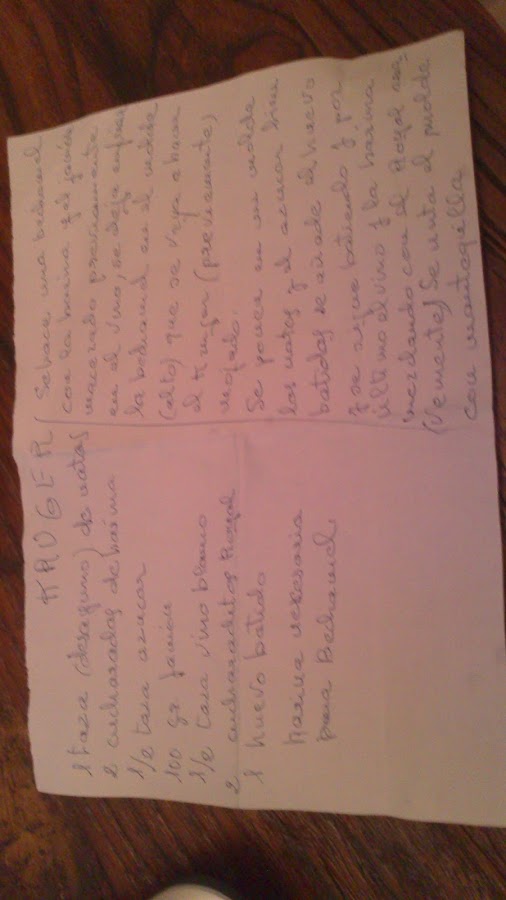 KRUGER
1 taza (desayuno) de natas
2 cucharadas de harina
1/2 taza azucar
100 gr jamón
1/2 taza vino blanco
2 cucharaditas Royal
1 huevo batido
harina necesaria
para Bechamel.
Se hace una bechamel
con la harina y el jamón
macerado previamente
en el vino, se deja enfriar
la bechamel en el molde
(alto) que se vaya a hacer
el (previamente)
mojado.
Se ponen en un molde
las natas y el azucar bien
batidas se añade el huevo
y se sigue batiendo y por
último el vino y la harina
mezclando con el Royal
(vemente) Se unta el molde
con mantequilla